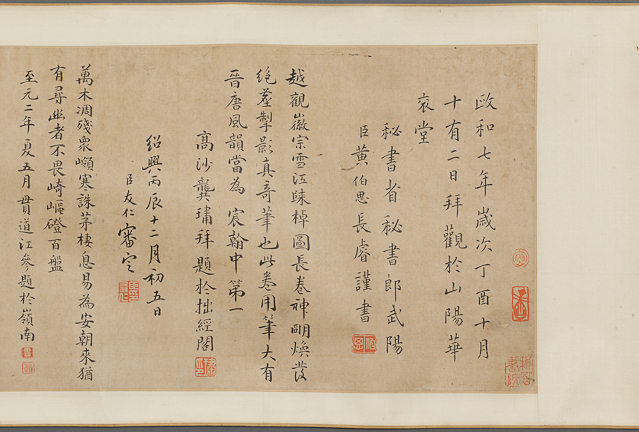 政和七年歲次丁酉十月
十有二日拜觀於山陽華
衮堂
秘書省秘書郎武陽
臣黃伯思長睿謹書
越觀徽宗雪江疎棹圖長卷神明煥發
絶塵掣影真奇筆也此卷用筆大有
晉唐風韻當為宸翰中第一
高沙龔璛拜題於拙經閣
紹興丙辰十二月初五日
臣友仁審定
萬木凋殘衆嶺寒誅茅棲息易為安朝來猶
有尋幽者不畏崎嶇磴百盤
至元二年夏五月貫道江參題於嶺南